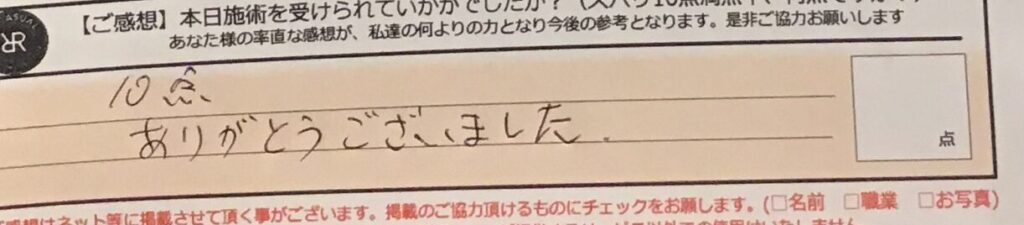 【ご感想】本日施術を受けられていかがでしたか？
あなた様の率直な感想が、私達の何よりの力となり今後の参考となります。是非ご協力お願いします
10点
ありがとうございました.
点
ご感想はネット等に掲載させて頂く事がございます。掲載のご協力頂けるものにチェックをお願します。(□名前 □職業 □お写真)